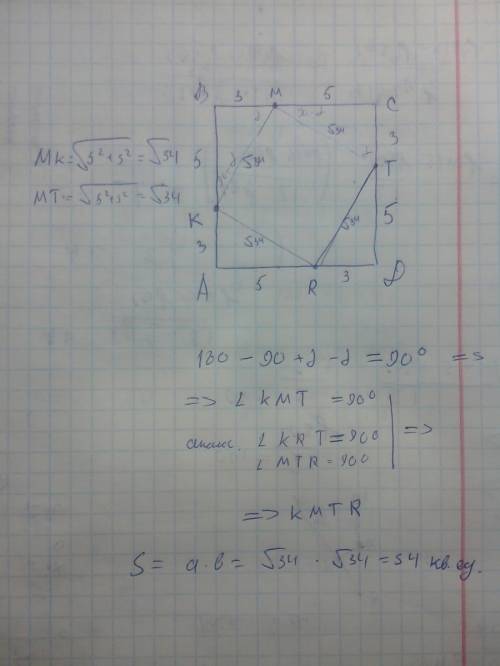 B 3 M 5 C
5 α 90-α √34 α 3
MK = √5²+3² = √34
MT = √5²+3² = √34
90-α √34 T
K √34 √34 5
3
A 5 R 3 D
180 - 90 + α - α = 90° =>
=> ∠ KMT = 90°
аналог. ∠ KRT = 90° =>
∠ MTR = 90°
=> KMTR
S = a·b = √34 · √34 = 34 кв. ед.